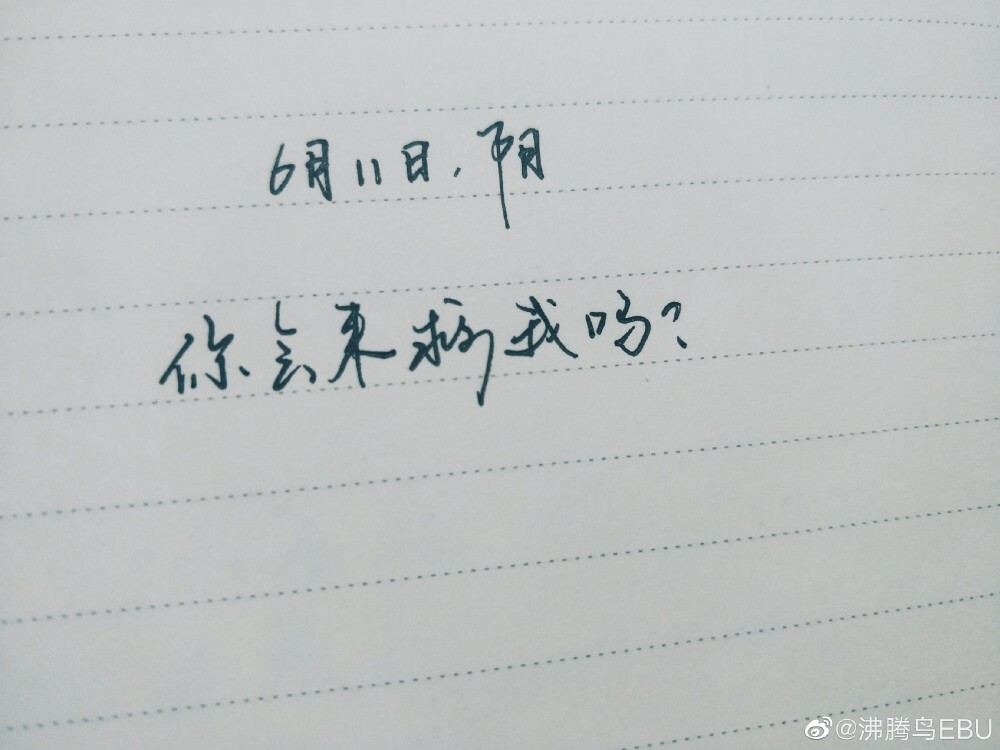 6月11日.阴
你会来救我吗?
@沸腾鸟EBU